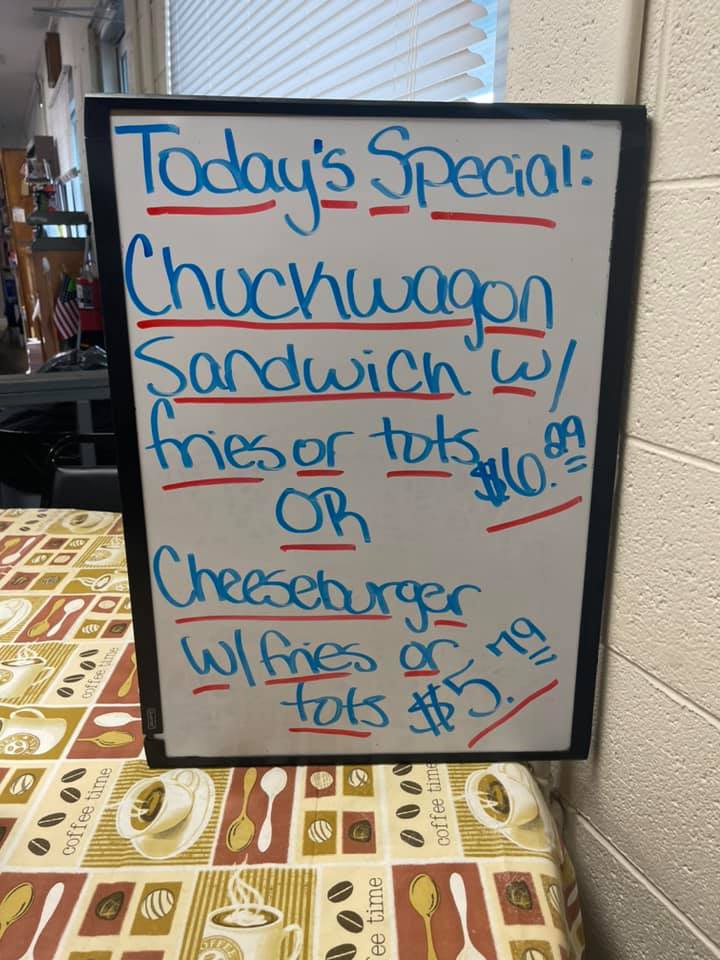 Today's Special:
Chuckwagon
Sandwich w/
fries or tots $6.29
OR
Cheeseburger
w/fries or
tots $5.79
coffee time
coffee time
coffee time
ee time
COFFEE